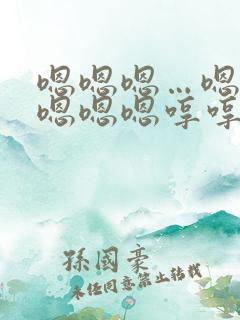 嗯嗯嗯…嗯
嗯嗯嗯哼哼
孫國豪
未经同意禁止转载